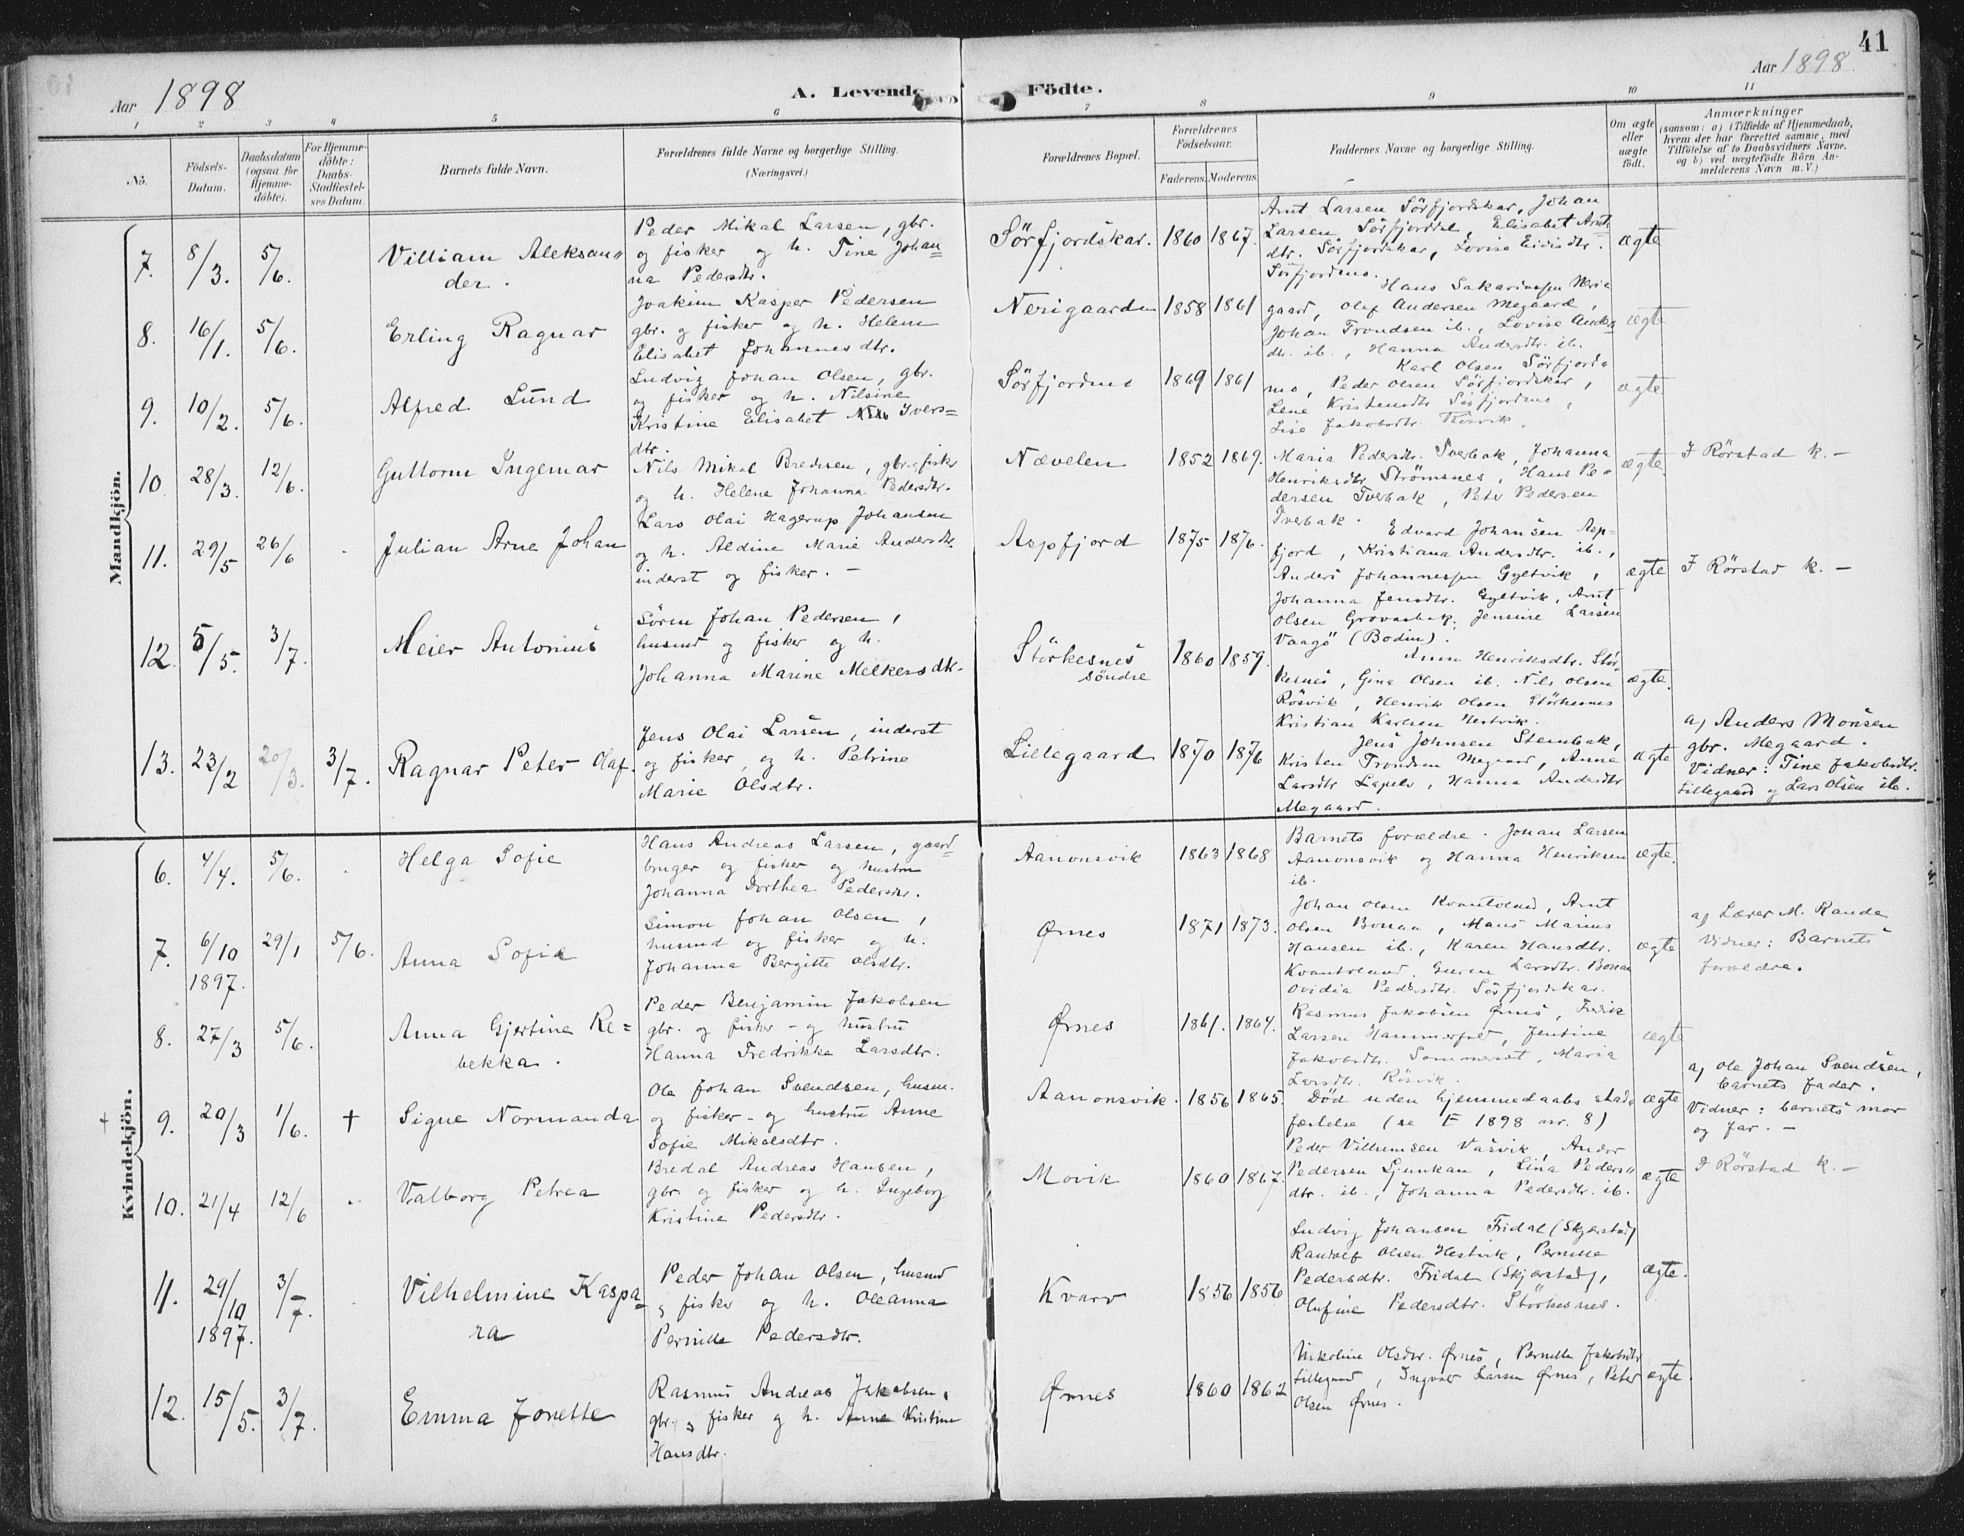 41
Aar 1898
A. Levende
Födte.
Aar 1898.
1 2 3 4 5 6 7 8 9 10 11
No.
Födsels-
Datum.
Daabsdatum
(ogsaa for
Hjemme-
döbte).
For Hjemme-
döbte:
Daabs-
Stadfæstel-
ses Datum.
Barnets fulde Navn.
Forældrenes fulde Navne og borgerlige Stilling.
(Næringsvei.)
Forældrenes Bopæl.
Forældrenes
Födselsaar.
Faderens. Moderens.
Faddernes Navne og borgerlige Stilling.
Om ægte
eller
uægte
født.
Anmærkninger
(saasom: a) i Tilfælde af Hjemmedaab,
hvem der har forrettet samme, med
Tilföielse af to Daabsvidners Navne,
og b) ved uægtefödte Börn An-
melderens Navn m. V.)
Mandkjön.
7. 8/3. 5/6. Villiam Aleksan=
der.
Peder Mikal Larsen, gbr.
og fisker og h. Tine Johan=
na Pedersdtr.
Sörfjordskar. 1860 1867.
Arnt Larsen Sörfjordskar, Johan
Larsen Sörfjorddal, Elisabet Arnt
dtr. Sörfjordskar, Lovise Eidisdtr.
Sörfjordmo.
ægte
8. 16/1. 5/6. Erling Ragnar
Joakim Kasper Pedersen
gbr. og fisker og h. Helene
Elisabet Johannesdtr.
Nerigaarden 1858 1861
Hans Sakariassen Neria
gaard, Olef Andersen Megaard,
Johan Trondsen ib., Lovise Anders
dtr. ib., Hanna Andersdtr. ib.
ægte
9. 10/2. 5/6. Alfred Lund
Ludvig Johan Olsen, gbr.
og fisker og h. Nilsine
Kristine Elisabet Ivers=
dtr.
Sörfjordmo 1869 1861
Karl Olsen Sörfjords
mo, Peder Olsen Sörfjordskar,
Lene Kristensdtr Sörfjordmo,
Lise Jakobsdtr. Rörvik.
ægte
10. 28/3. 12/6. Guttorm Ingemar
Nils Mikal Bredesen, gbr. og fisker
og h. Helene Johanna Pedersdtr.
Nævelen 1852 1869.
Maria Pedersdtr. Tverbak, Johanna
Henriksdtr Strömsnes, Hans Pe=
dersen Tverbak, Petr Pedersen
Tverbak.
ægte. I Rörstad k. —
11. 29/5 26/6 Julian Arne Johan
Lars Olai Hagerup Johansen
og h. Aldine Marie Andersdtr.
inderst og fisker. —
Aspfjord 1875 1876.
Edvard Johansen Asp=
fjord, Kristiana Andersdtr. ib.,
Anders Johannessen Gyltvik,
Johanna Jensdtr. Gyltvik, Arnt
Olsen Grovasbak, Jensine Larsen
Vaagö (Bodin).
ægte I Rörstad k. —
12. 5/5. 3/7. Meier Antonius
Sören Johan Pedersen,
husmd og fisker og h.
Johanna Marine Melkersdtr.
Störkesnes
söndre 1860 1859.
Anna Henriksdtr. Stör=
kesnes, Gina Olsen ib. Nils Olsen
Rösvik, Henrik Olsen Störkesnes
Kristian Karlsen Hestvik.
ægte.
13. 23/2 20/3. 3/7. Ragnar Peter Olaf.
Jens Olai Larsen, inderst
og fisker, og h. Petrine
Marie Olsdtr.
Lillegaard 1870 1876
Jens Johnsen Stembak,
Kristen Trondsen Megaard, Anne
Larsdtr Lapelv, Hanna Andersdtr
Megaard.
ægte
a) Anders Monsen
gbr. Megaard.
Vidner: Tine Jakobsdtr.
Lillegaard og Lars Olsen ib.
Kvindekjön.
6. 4/4. 5/6. Helga Sofie
Hans Andreas Larsen, gaard
bruger og fisker og hustru
Johanna Dorthea Pedersdtr.
Aanonsvik 1863 1868
Barnets forældre. Johan Larsen
Aanonsvik og Hanna Henriksen
ib.
ægte.
7. 6/10
1897. 29/1 5/6. Anna Sofie
Simon Johan Olsen,
husmd og fisker og h.
Johanna Bergitte Olsdtr.
Ørnes 1871 1873.
Johan Olsen Kvantoland, Arnt
Olsen Bonaa, Hans Marius
Hansen ib., Karen Hansdtr.
Kvantoland, Guren Larsdtr. Bonaa
Ovidia Pedersdtr. Sörfjordskar.
ægte
a) Lærer M. Rande
Vidner: Barnets
forældre.
8. 27/3 5/6. Anna Gjertine Re=
bekka.
Peder Benjamin Jakobsen
gbr. og fisker — og hustru
Hanna Fredrikke Larsdtr.
Ørnes 1861. 1864.
Rasmus Jakobsen Ørnes, Fredrik
Larsen Hammerfald, Jentine
Jakobsdtr. Sommerset, Maria
Larsdtr. Rösvik.
ægte
+ 9. 20/3 1/6. + Signe Normanda
Ole Johan Svendsen, husm.
og fisker — og hustru Anne
Sofie Mikalsdtr.
Aanonsvik. 1856 1865.
Död uden Hjemmedaabs stad=
fæstelse (se E 1898 nr. 8)
ægte
a) Ole Johan Svendsen,
barnets fader.
Vidner: barnets mor
og far. —
10. 21/4 12/6 Valborg Petrea
Bredal Andreas Hansen,
gbr. og fisker og h. Ingeborg
Kristine Pedersdtr.
Movik 1860 1867.
Peder Villumsen Vasvik, Ander
Pedersen Ljunkan, Lina Peders=
dtr. ib., Johanna Pedersdtr. ib.
ægte I Rörstad k. —
11. 29/10
1897. 3/7. Vilhelmine Kaspa=
ra
Peder Johan Olsen, husmd
og fisker og h. Oleanna
Pernille Pedersdtr.
Kvarv 1856 1856
Ludvig Johansen Fridal (Skjerstad)
Randolf Olsen Hestvik, Pernille
Pedersdtr. Fridal (Skjerstad),
Olufine Pedersdtr. Störkesnes.
ægte.
12. 15/5. 3/7. Emma Jonette
Rasmus Andreas Jakobsen,
gbr. og fisker og h. Anne Kristine
Hansdtr.
Ørnes 1860 1862
Nikoline Olsdtr. Ørnes, Pernille Jakobsdtr
Lillegaard, Ingvar Larsen Ørnes, Peter
Olsen Ørnes.
ægte.